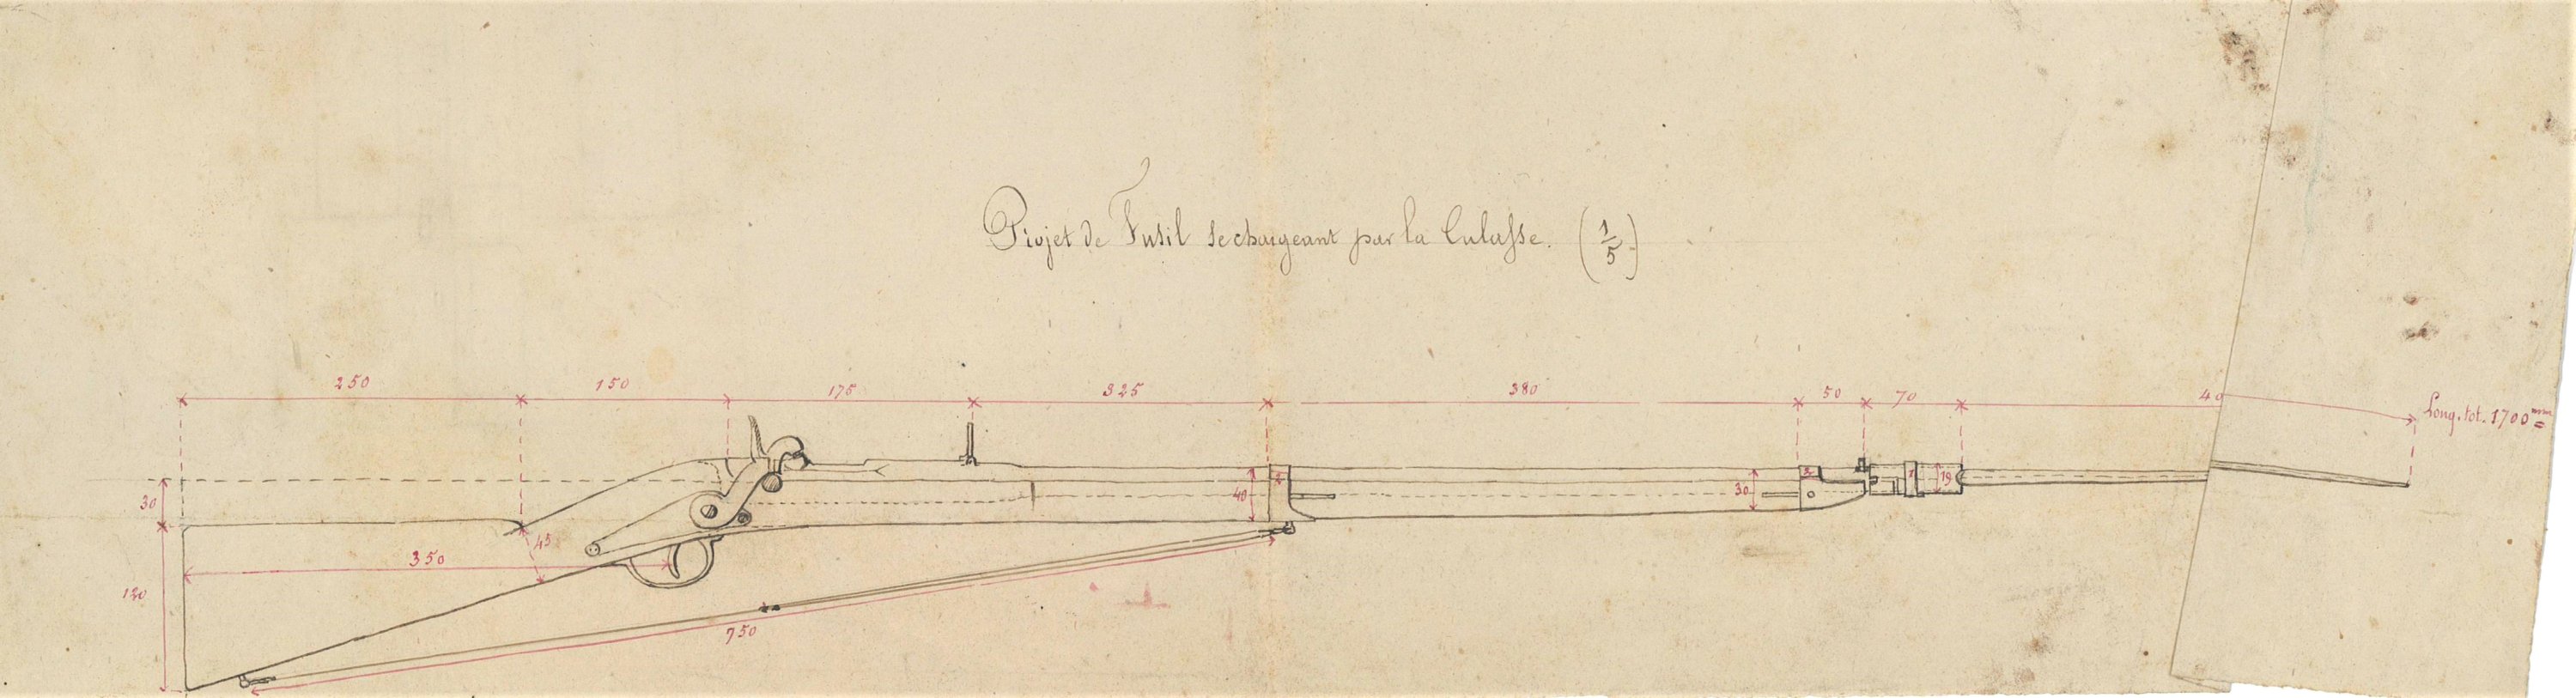 Projet de Fusil se chargeant par la Culasse. (1/5)
250 150 175 325 380 50 70 40
Long. tot. 1700 mm
30
40 30 19
45
350
120
750